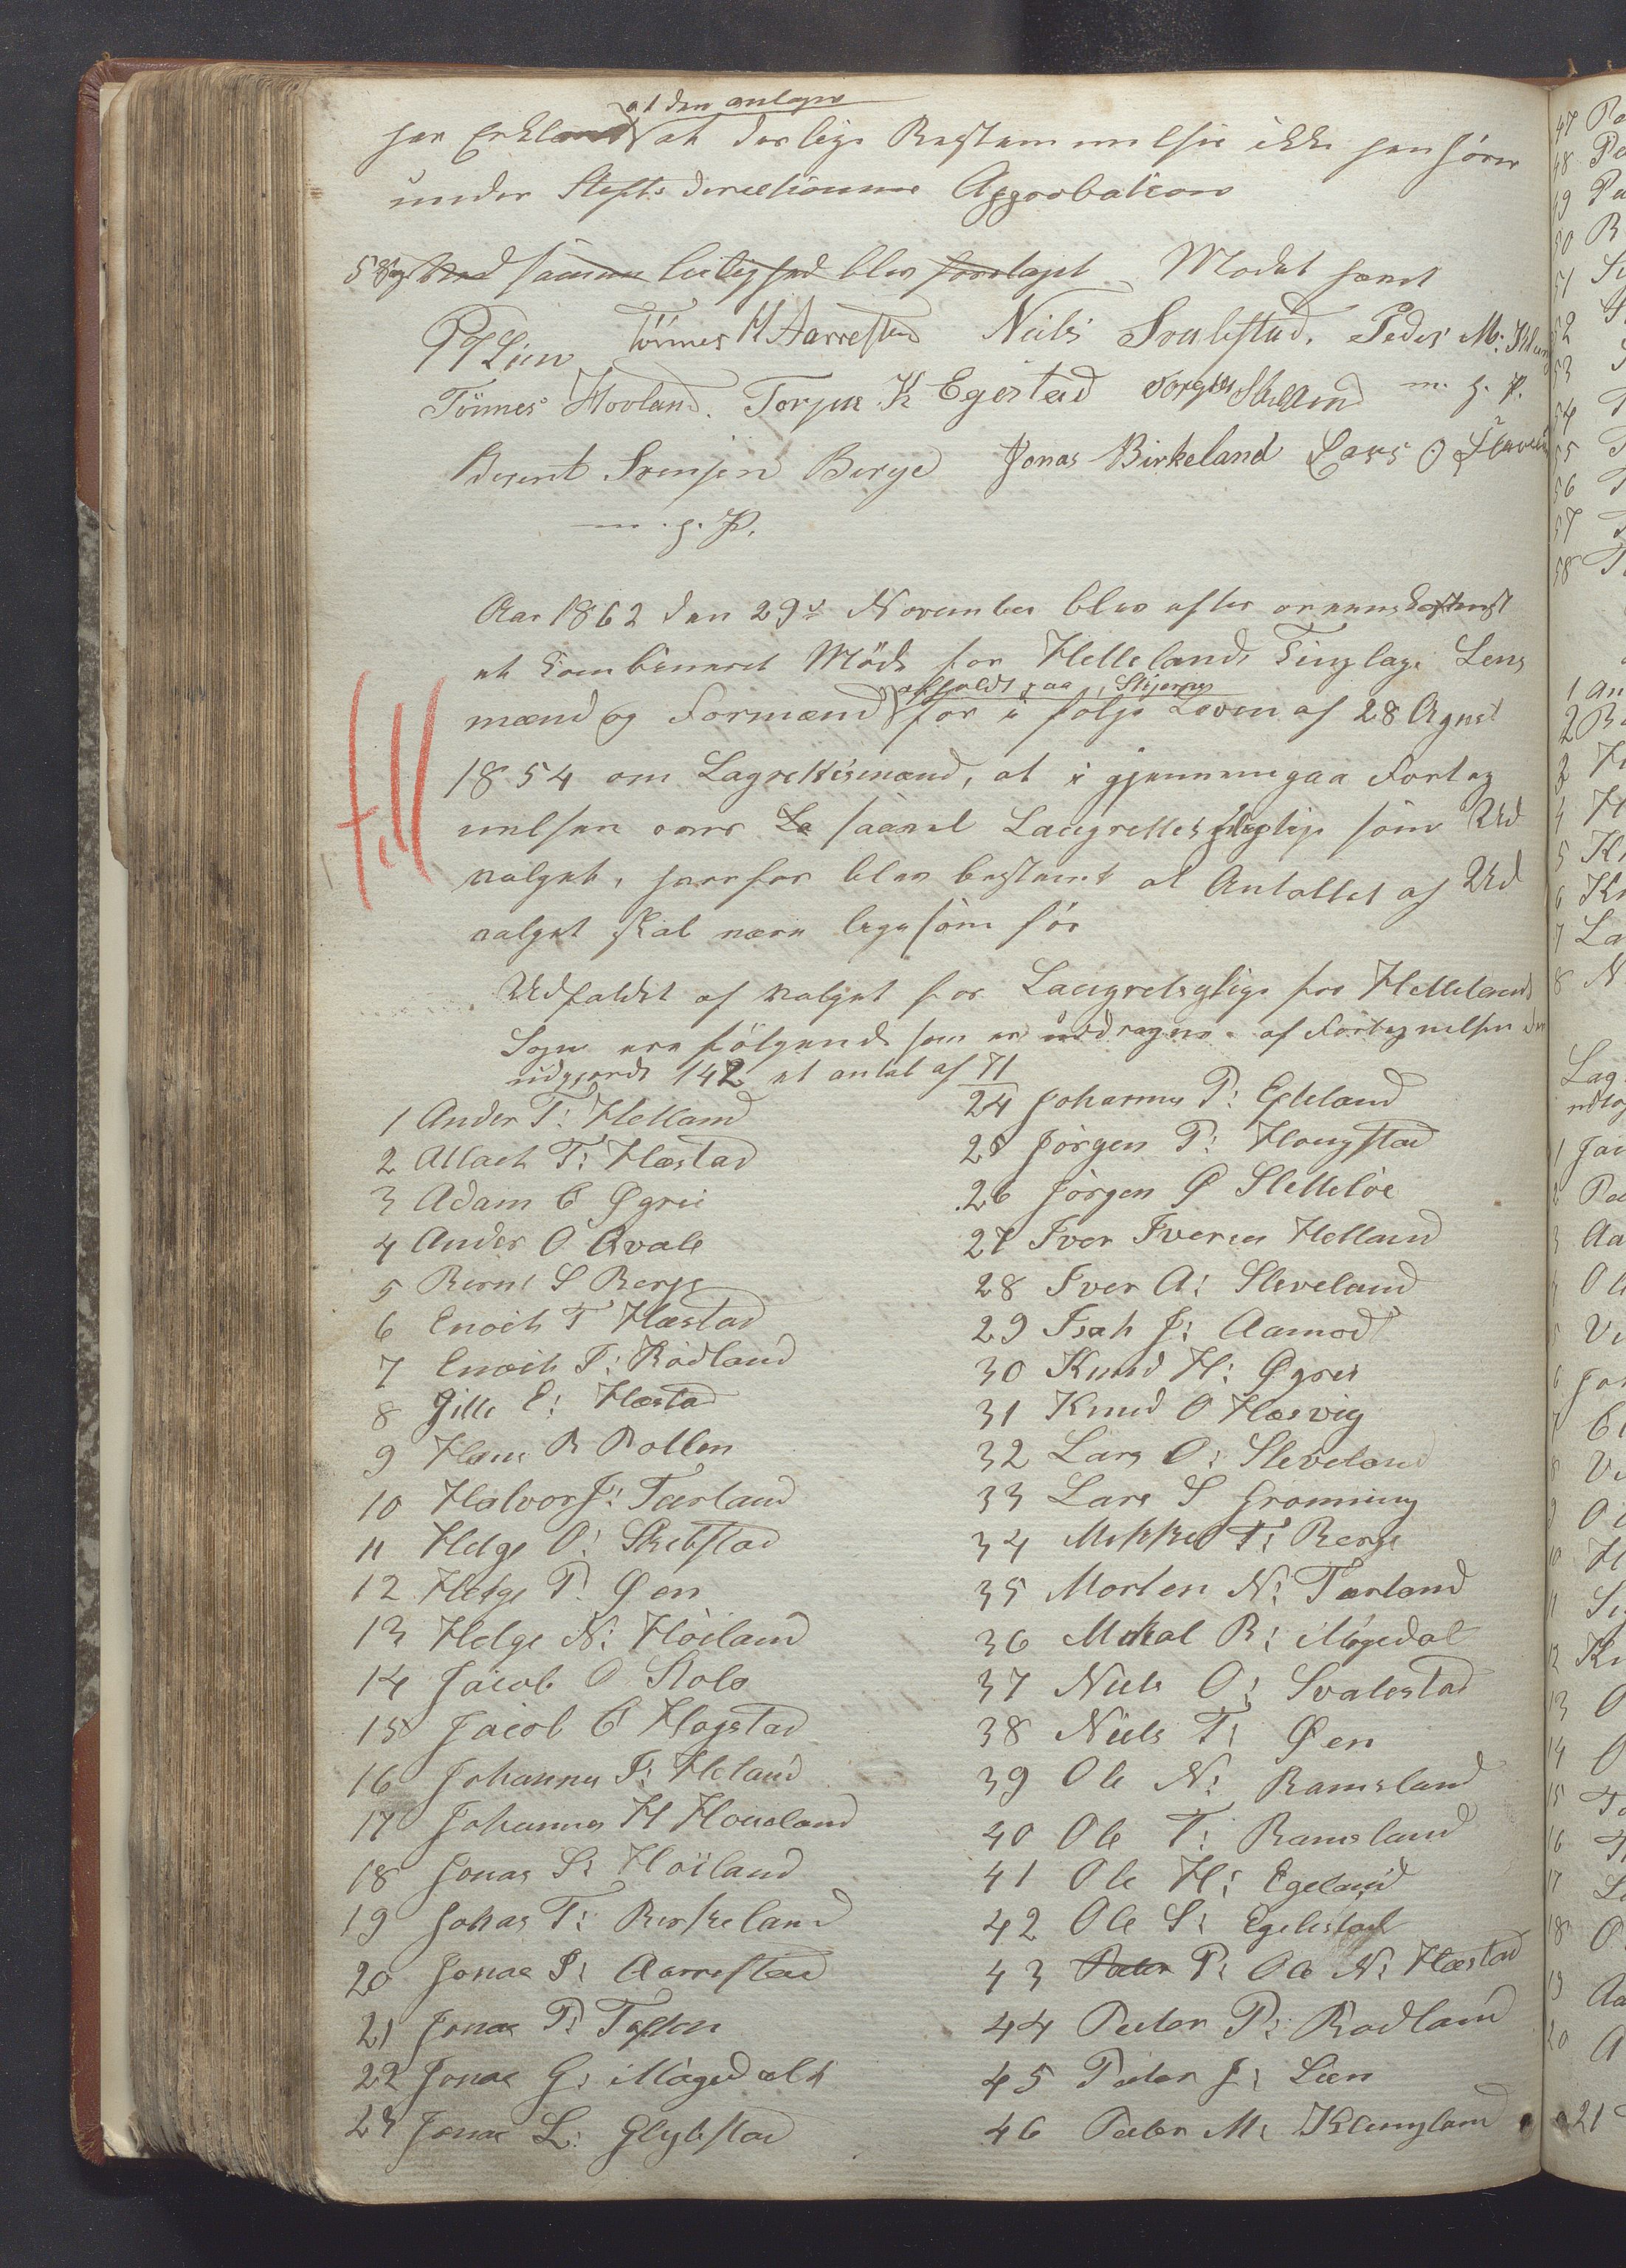 at den anlagte
har Erklæret at deslige Bestemmelser ikke henhörer
under Stiftsdirectionens Approbation
5 Ved samme leilighed blev forelagt Modet hævet
PJ Lien Tönnes H Aarrestad Niels Svalestad. Peder M: Klung
Tönnes Hovland. Torger K Egestad m. f. P.
Berent Svensen Berge Jonas Birkeland Lars O
m. f. P.
Aar 1862 den 29de November blev efter
et Combineret Möde for Hellelands Tinglags Lens
afholdt paa Skjerpe
mænd og Formænd for i følge Loven af 28 Agust
1854 om Lagrettismænd, at i gjennemgaa Forteg
nelsen over La saavel Laugrettesplegtige som Ud
valget, hvorfor blev bestemt at Antallet af Ud
valget skal være lige som för
Udfaldet af valget for Laugretsgligi for Hellelands
Sogn ere fölgende som er uddragne af Fortegnelsen den
udgjorde 142 et antal af 71
1 Ander T: Helland
2 Atlach T: Hæstad
3 Adam C Øgrei
4 Ander O Qvale
5 Bernt S Berge
6 Enoch T Hæstad
7 Enoch T: Rödland
8 Gitle E: Hæstad
9 Hans R Rollen
10 Halvor J: Tærland
11 Helge O: Skebstad
12 Helge P Øen
13 Helge N: Höiland
14 Jacob O Stole
15 Jacob C Hogstad
16 Johannes P: Heland
17 Johannes H Houeland
18 Jonas S: Höiland
19 Johas T: Birkeland
20 Jonas P: Aarrestad
21 Jonas P: Teplen
22 Jonas G: Mögedaln
23 Jonas L: Glybstad
24 Johannes P: Egeland
25 Jörgen P: Hougstad
26 Jörgen P Sletteløe
27 Iver Iversen Helland
28 Iver A: Sleveland
29 Isak J: Aamodt
30 Knud H: Øgrei
31 Knud O Hæsvig
32 Lars O: Sleveland
33 Lars S Gromning
34 Mikkel T: Berge
35 Morten N: Tærland
36 Mikal R: Mögedal
37 Niels O: Svalestad
38 Niels T: Øen
39 Ole N: Ramsland
40 Ole T: Ramsland
41 Ole H: Egeland
42 Ole S: Egelestad
43 Peder P: Ole N: Hæstad
44 Peder P: Rodland
45 Peder J: Lien
46 Peder M: Klungland